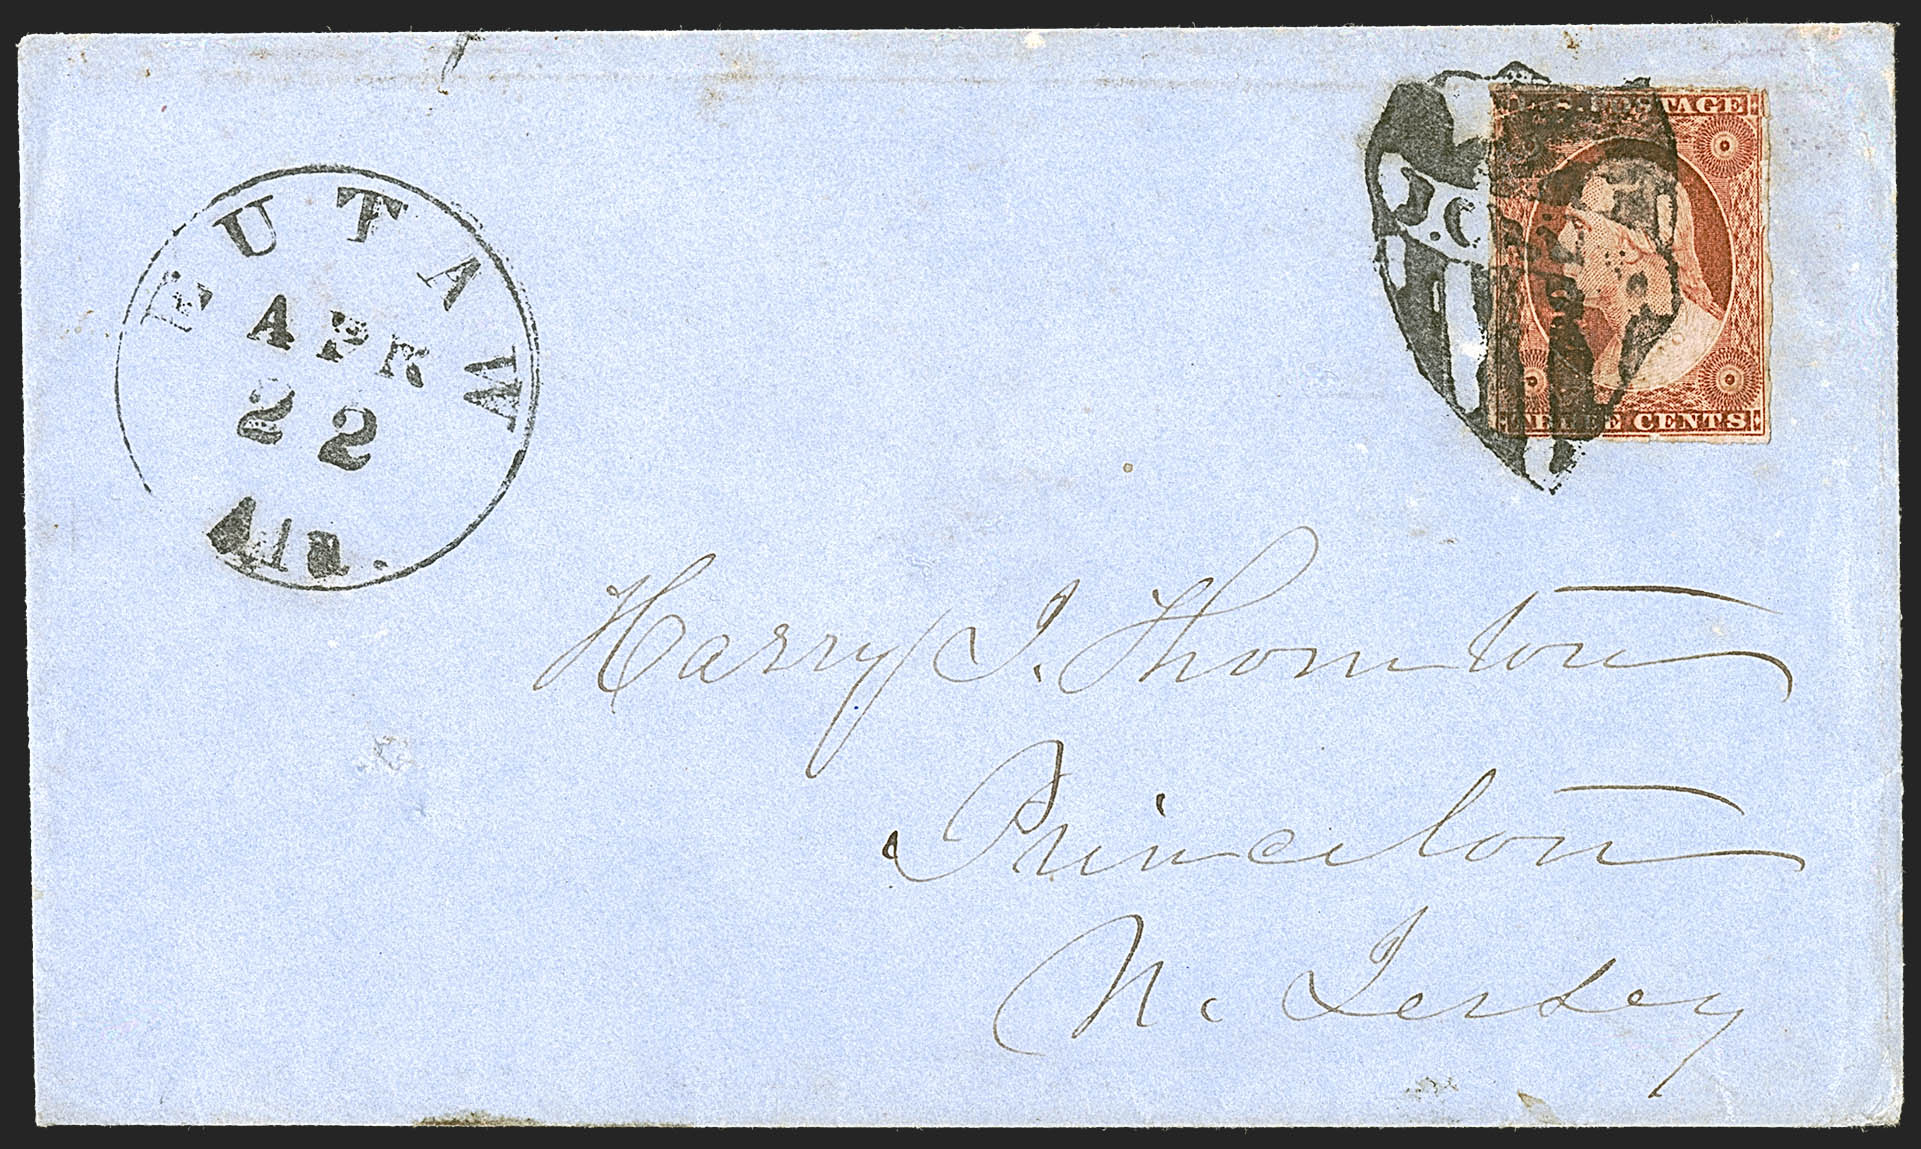 EUTAW
APR
22
Ala.
U.S. POSTAGE
THREE CENTS
J.C.
Harry I. Thornton
Princeton
N. Jersey